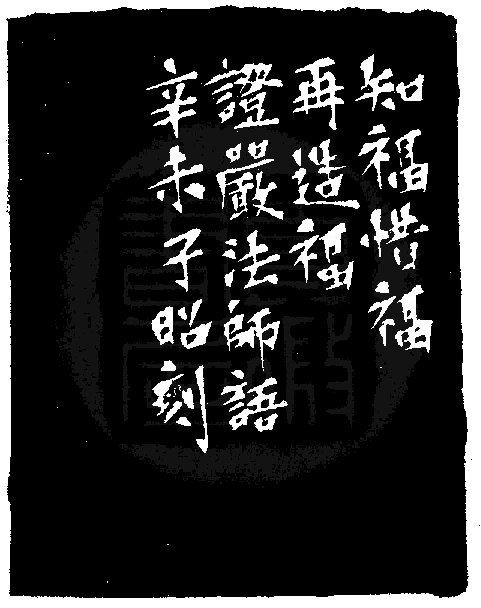 知福惜福
再造福
證嚴法師語
辛未子昭刻